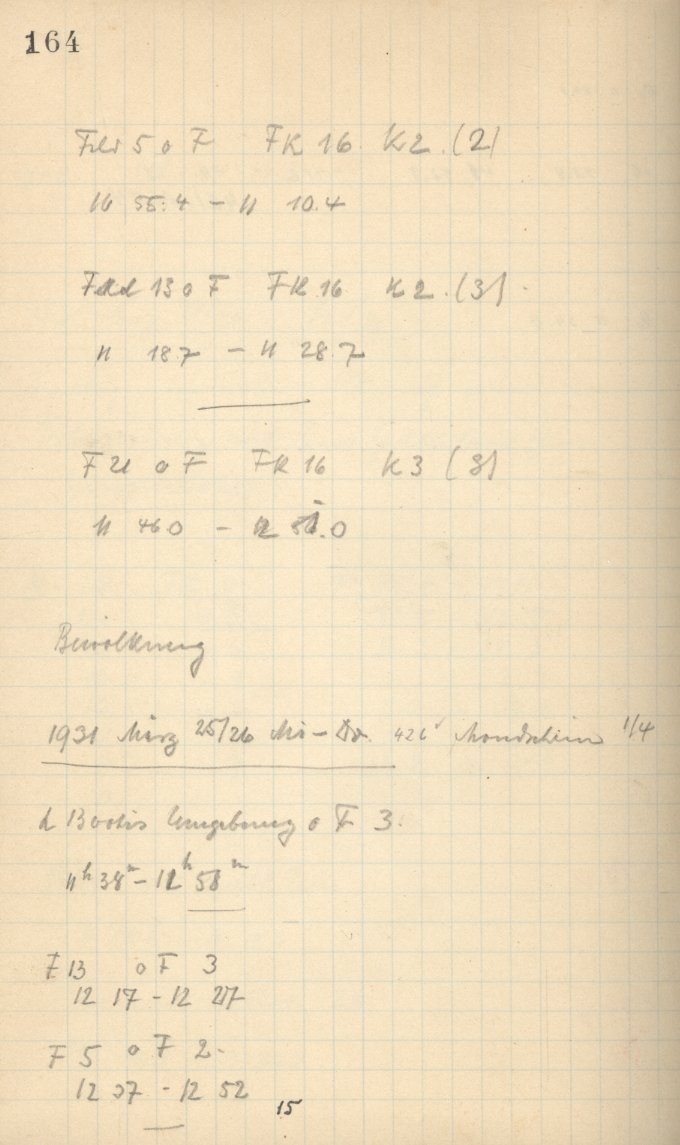 164
Feld 5 o F FK 16 K2. (2)
16 55.4 – 11 10.4
Feld 13 o F FK 16 K2. (3).
11 18.7 – 11 28.7
F 21 o F FK 16 K3 (3)
11 46.0 – 12 .0
Bewölkung
1931 März 25/26 Mi – Do. 426 Mondschein 1/4
Bootis Umgebung o F 3.
11h 38m – 12h 58m
F 13 o F 3
12 17 – 12 27
F 5 o F 2.
12 37 – 12 52
15